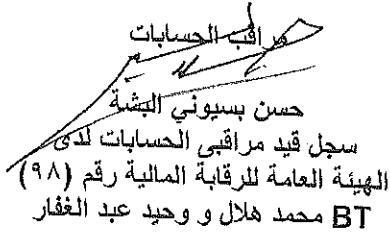 مراقب الحسابات
حسن بسيوني البشة
سجل قيد مراقبي الحسابات لدى
الهيئة العامة للرقابة المالية رقم (٩٨)
BT محمد هلال و وحيد عبد الغفار